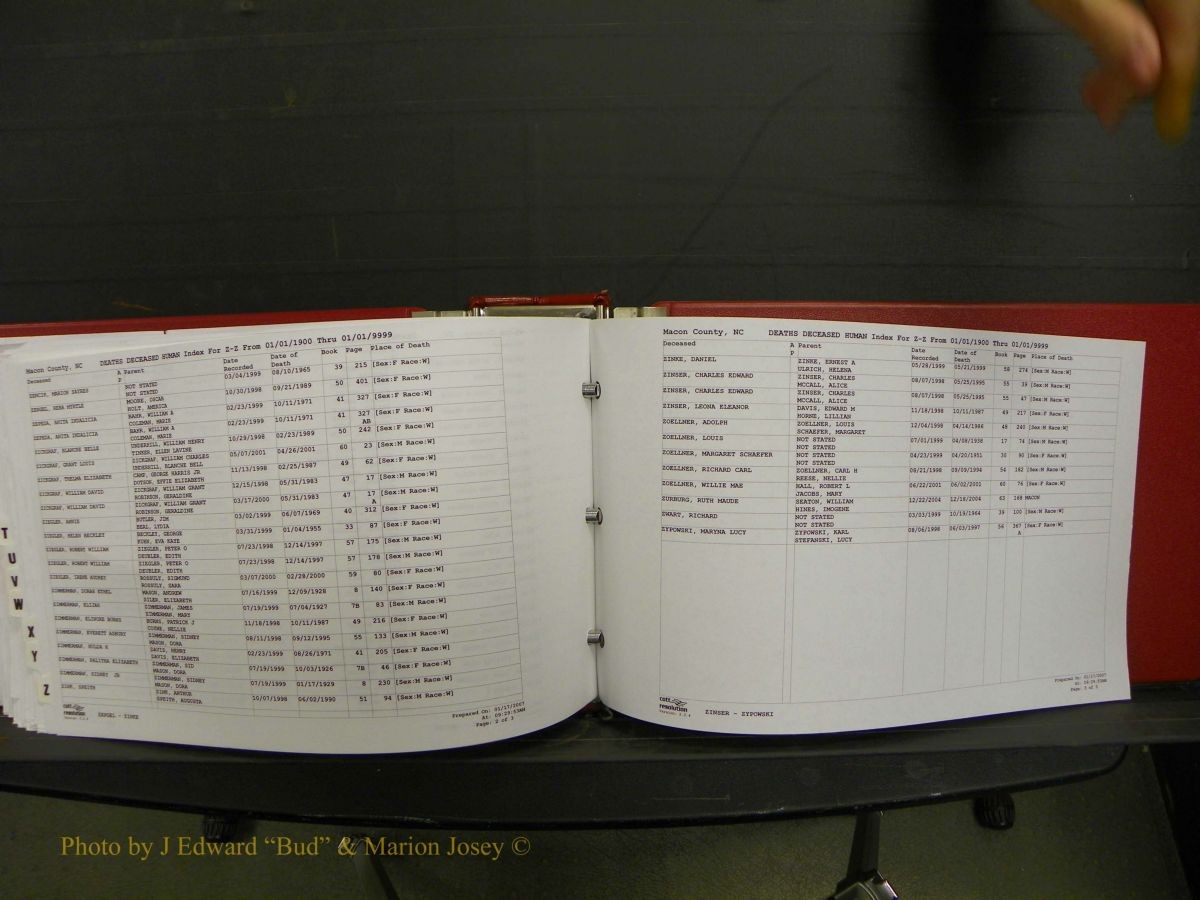 Macon County, NC DEATHS DECEASED HUMAN Index For Z-Z From 01/01/1900 Thru 01/01/9999
Deceased A Parent Date Recorded Date of Death Book Page Place of Death
P
03/04/1999 08/10/1965 39 215 [Sex:F Race:W]
NOT STATED
NOT STATED
MOORE, OSCAR 10/30/1998 09/21/1989 50 401 [Sex:F Race:W]
HOLT, AMERICA
ZEPEDA, ANITA INDALICIA BAHR, WILLIAM A 02/23/1999 10/11/1971 41 327 [Sex:F Race:W]
COLEMAN, MARIE
ZEPEDA, ANITA INDALICIA BAHR, WILLIAM A 02/23/1999 10/11/1971 41 327 [Sex:F Race:W]
COLEMAN, MARIE AB
ZICKGRAF, BLANCHE BELLE UNDERHILL, WILLIAM HENRY 10/29/1998 02/23/1989 50 242 [Sex:F Race:W]
TINKER, ELLEN LAVINE
ZICKGRAF, GRANT LOUIS ZICKGRAF, WILLIAM CHARLES 05/07/2001 04/26/2001 60 23 [Sex:M Race:W]
UNDERHILL, BLANCHE BELL
ZICKGRAF, THELMA ELIZABETH CAMP, GEORGE HARRIS JR 11/13/1998 02/25/1987 49 62 [Sex:F Race:W]
DOTSON, EFFIE ELIZABETH
ZICKGRAF, WILLIAM DAVID ZICKGRAF, WILLIAM GRANT 12/15/1998 05/31/1983 47 17 [Sex:M Race:W]
ROBINSON, GERALDINE
ZICKGRAF, WILLIAM DAVID ZICKGRAF, WILLIAM GRANT 03/17/2000 05/31/1983 47 17 [Sex:M Race:W]
ROBINSON, GERALDINE A
ZIEGLER, ANNIE BUTLER, JIM 03/02/1999 06/07/1969 40 312 [Sex:F Race:W]
BEAL, LYDIA
ZIEGLER, HELEN BECKLEY BECKLEY, GEORGE 03/31/1999 01/04/1955 33 87 [Sex:F Race:W]
KUHN, EVA KAYE
ZIEGLER, ROBERT WILLIAM ZIEGLER, PETER O 07/23/1998 12/14/1997 57 175 [Sex:M Race:W]
DEUBLER, EDITH
ZIEGLER, ROBERT WILLIAM ZIEGLER, PETER O 07/23/1998 12/14/1997 57 178 [Sex:M Race:W]
DEUBLER, EDITH
ZIEGLER, IRENE AUDREY SIGMUND 03/07/2000 02/28/2000 59 80 [Sex:F Race:W]
SARA
ZIMMERMAN, DORAS ETHEL MASON, ANDREW 07/16/1999 12/09/1928 8 140 [Sex:F Race:W]
SILER, ELIZABETH
ZIMMERMAN, ELIZAH ZIMMERMAN, JAMES 07/19/1999 07/04/1927 7B 83 [Sex:M Race:W]
ZIMMERMAN, MARY
ZIMMERMAN, ELINORE BURNS BURNS, PATRICK J 11/18/1998 10/11/1987 49 216 [Sex:F Race:W]
NELLIE
ZIMMERMAN, EVERETT ASBURY ZIMMERMAN, SIDNEY 08/11/1998 09/12/1995 55 133 [Sex:M Race:W]
MASON, DORA
ZIMMERMAN, HULDA K DAVIS, HENRY 02/23/1999 08/26/1971 41 205 [Sex:F Race:W]
DAVIS, ELIZABETH
ZIMMERMAN, SALITHA ELIZABETH ZIMMERMAN, SID 07/19/1999 10/03/1926 7B 46 [Sex:F Race:W]
MASON, DORA
ZIMMERMAN, SIDNEY JR ZIMMERMAN, SIDNEY 07/19/1999 01/17/1929 8 230 [Sex:M Race:W]
MASON, DORA
ZINK, SPEITH ZINK, ARTHUR 10/07/1998 06/02/1990 51 94 [Sex:M Race:W]
SPEITH, AUGUSTA
cott resolution
ZENGEL - ZINKE
Prepared On: 01/17/2007
At: 09:29:53AM
Page: 2 of 3
T
U
V
W
X
Y
Z
Macon County, NC DEATHS DECEASED HUMAN Index For Z-Z From 01/01/1900 Thru 01/01/9999
Deceased A Parent Date Recorded Date of Death Book Page Place of Death
P
ZINKE, DANIEL ZINKE, ERNEST A 05/28/1999 05/21/1999 58 274 [Sex:M Race:W]
ULRICH, HELENA
ZINSER, CHARLES EDWARD ZINSER, CHARLES 08/07/1998 05/25/1995 55 39 [Sex:M Race:W]
MCCALL, ALICE
ZINSER, CHARLES EDWARD ZINSER, CHARLES 08/07/1998 05/25/1995 55 47 [Sex:M Race:W]
MCCALL, ALICE
ZINSER, LEONA ELEANOR DAVIS, EDWARD M 11/18/1998 10/11/1987 49 217 [Sex:F Race:W]
HORNE, LILLIAN
ZOELLNER, ADOLPH ZOELLNER, LOUIS 12/04/1998 04/14/1986 48 240 [Sex:M Race:W]
SCHAEFER, MARGARET
ZOELLNER, LOUIS NOT STATED 07/01/1999 04/08/1938 17 74 [Sex:M Race:W]
NOT STATED
ZOELLNER, MARGARET SCHAEFER NOT STATED 04/23/1999 04/20/1951 30 90 [Sex:F Race:W]
NOT STATED
ZOELLNER, RICHARD CARL ZOELLNER, CARL H 08/21/1998 09/09/1994 54 182 [Sex:M Race:W]
REESE, NELLIE
ZOELLNER, WILLIE MAE HALL, ROBERT L 06/22/2001 06/02/2001 60 76 [Sex:F Race:W]
JACOBS, MARY
ZURBURG, RUTH MAUDE SEATON, WILLIAM 12/22/2004 12/16/2004 63 168 MACON
HINES, IMOGENE
ZWART, RICHARD NOT STATED 03/03/1999 10/19/1964 39 100 [Sex:M Race:W]
NOT STATED
ZYPOWSKI, MARYNA LUCY ZYPOWSKI, KARL 08/06/1998 06/03/1997 56 367 [Sex:F Race:W]
STEFANSKI, LUCY A
cott resolution
ZINSER - ZYPOWSKI
Prepared By: 01/17/2007
At: 09:29:53AM
Page: 3 of 3
Photo by J Edward “Bud” & Marion Josey ©